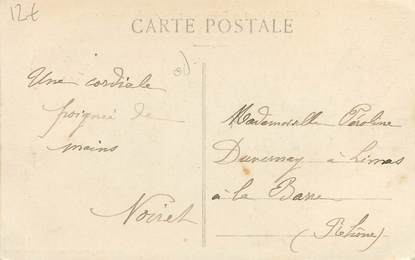 12€
CARTE POSTALE
Une cordiale
poignée de
mains
Noiret
Mademoiselle
Duvernay à Limas
à la Barre
(Rhône)